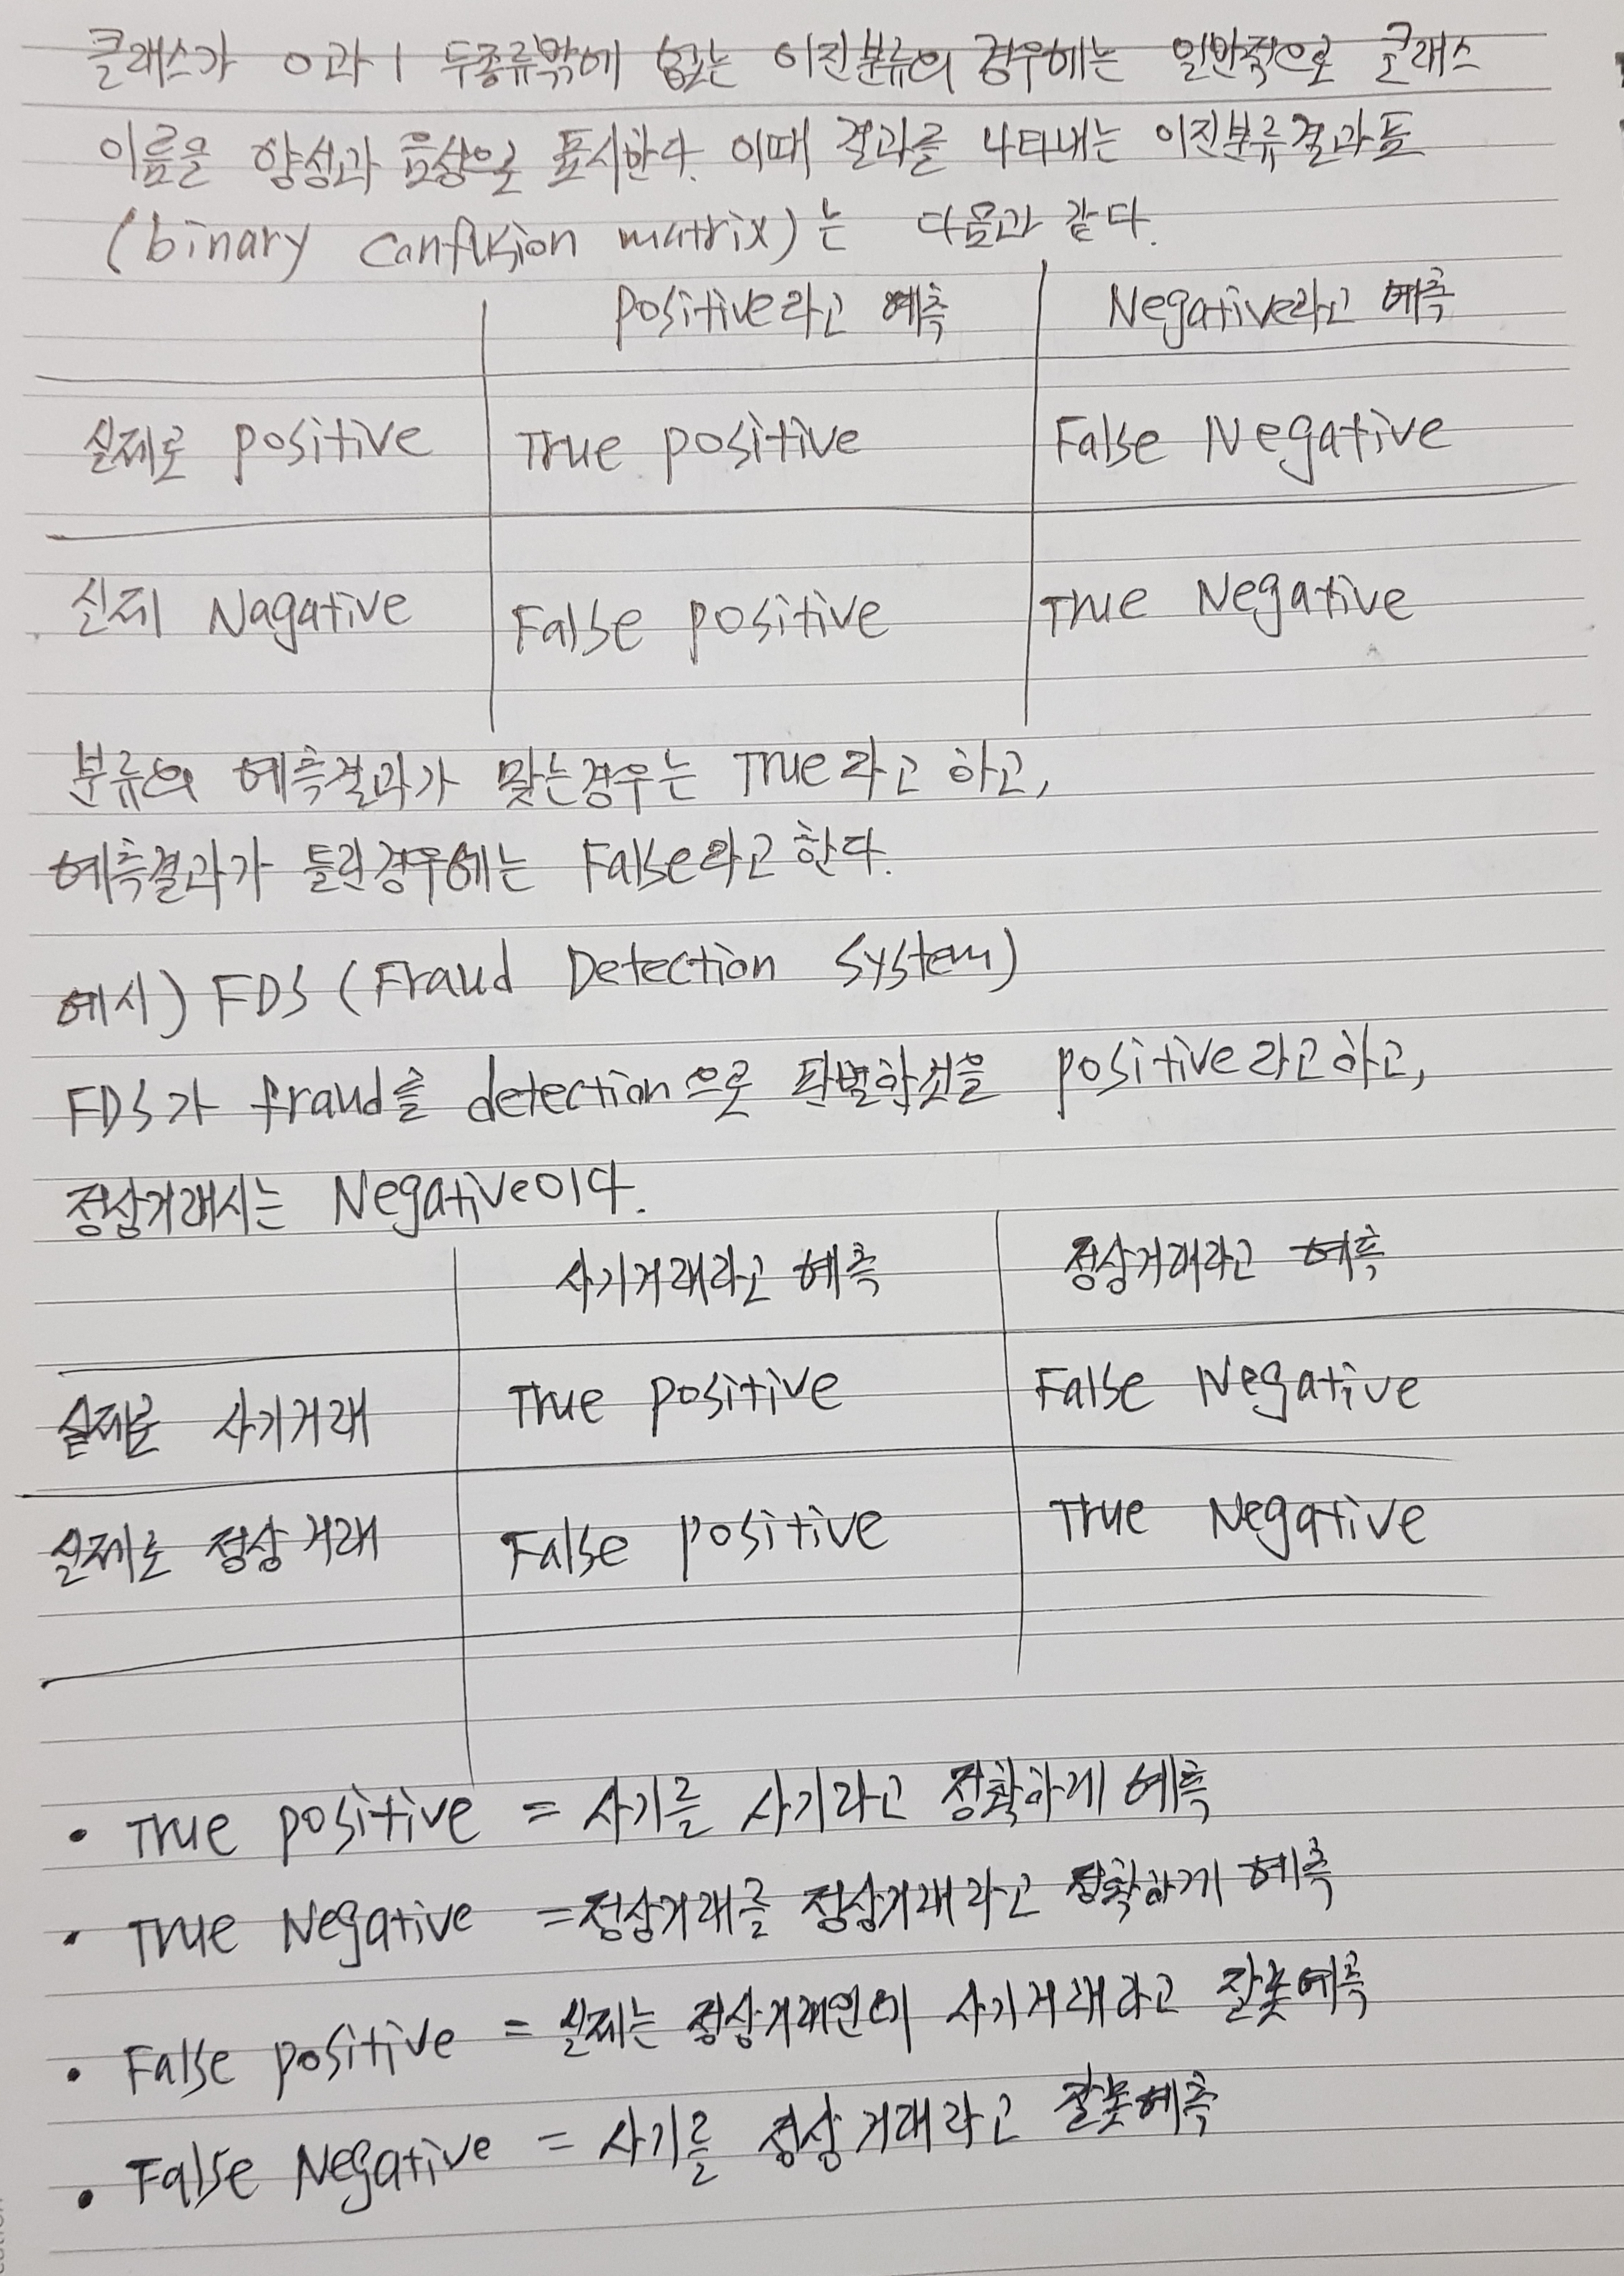 클래스가 0과 1 두종류밖에 없는 이진분류의 경우에는 일반적으로 클래스
이름을 양성과 음성으로 표시한다. 이때 결과를 나타내는 이진분류결과표
(binary confusion matrix)는 다음과 같다.
positive라고 예측 Negative라고 예측
실제로 positive True positive False Negative
실제 Nagative False positive True Negative
분류의 예측결과가 맞는경우는 True라고 하고,
예측결과가 틀린경우에는 False라고한다.
예시) FDS (Fraud Detection System)
FDS가 fraud를 detection으로 판별한것을 positive라고하고,
정상거래시는 Negative이다.
사기거래라고 예측 정상거래라고 예측
실제로 사기거래 True positive False Negative
실제로 정상거래 False positive True Negative
• True positive = 사기를 사기라고 정확하게 예측
• True Negative =정상거래를 정상거래라고 정확하게 예측
• False positive = 실제는 정상거래인데 사기거래라고 잘못예측
• False Negative = 사기를 정상거래라고 잘못예측